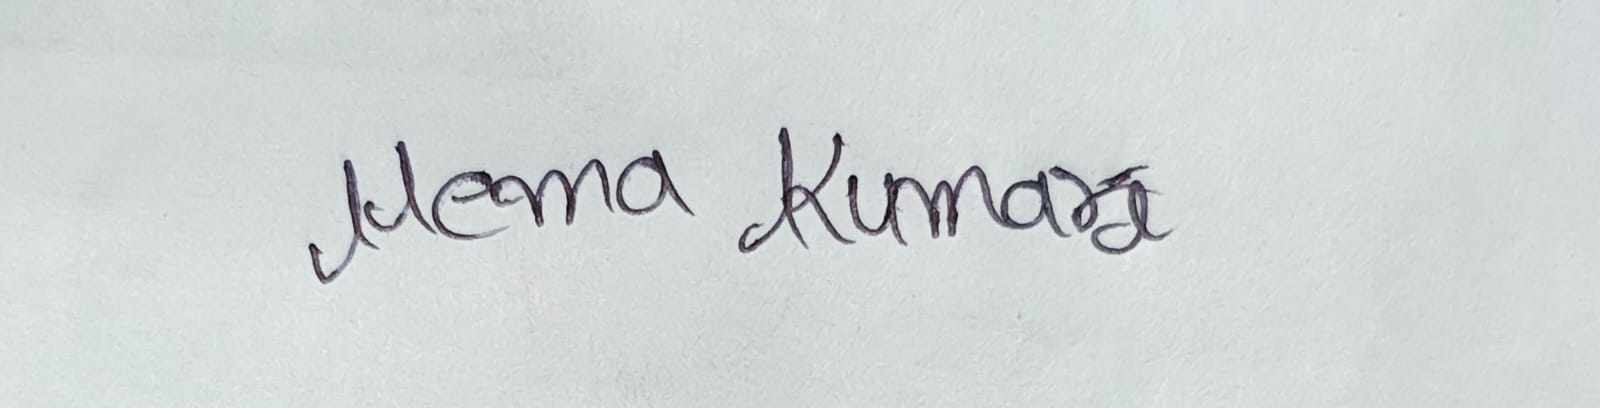 Hema Kumari